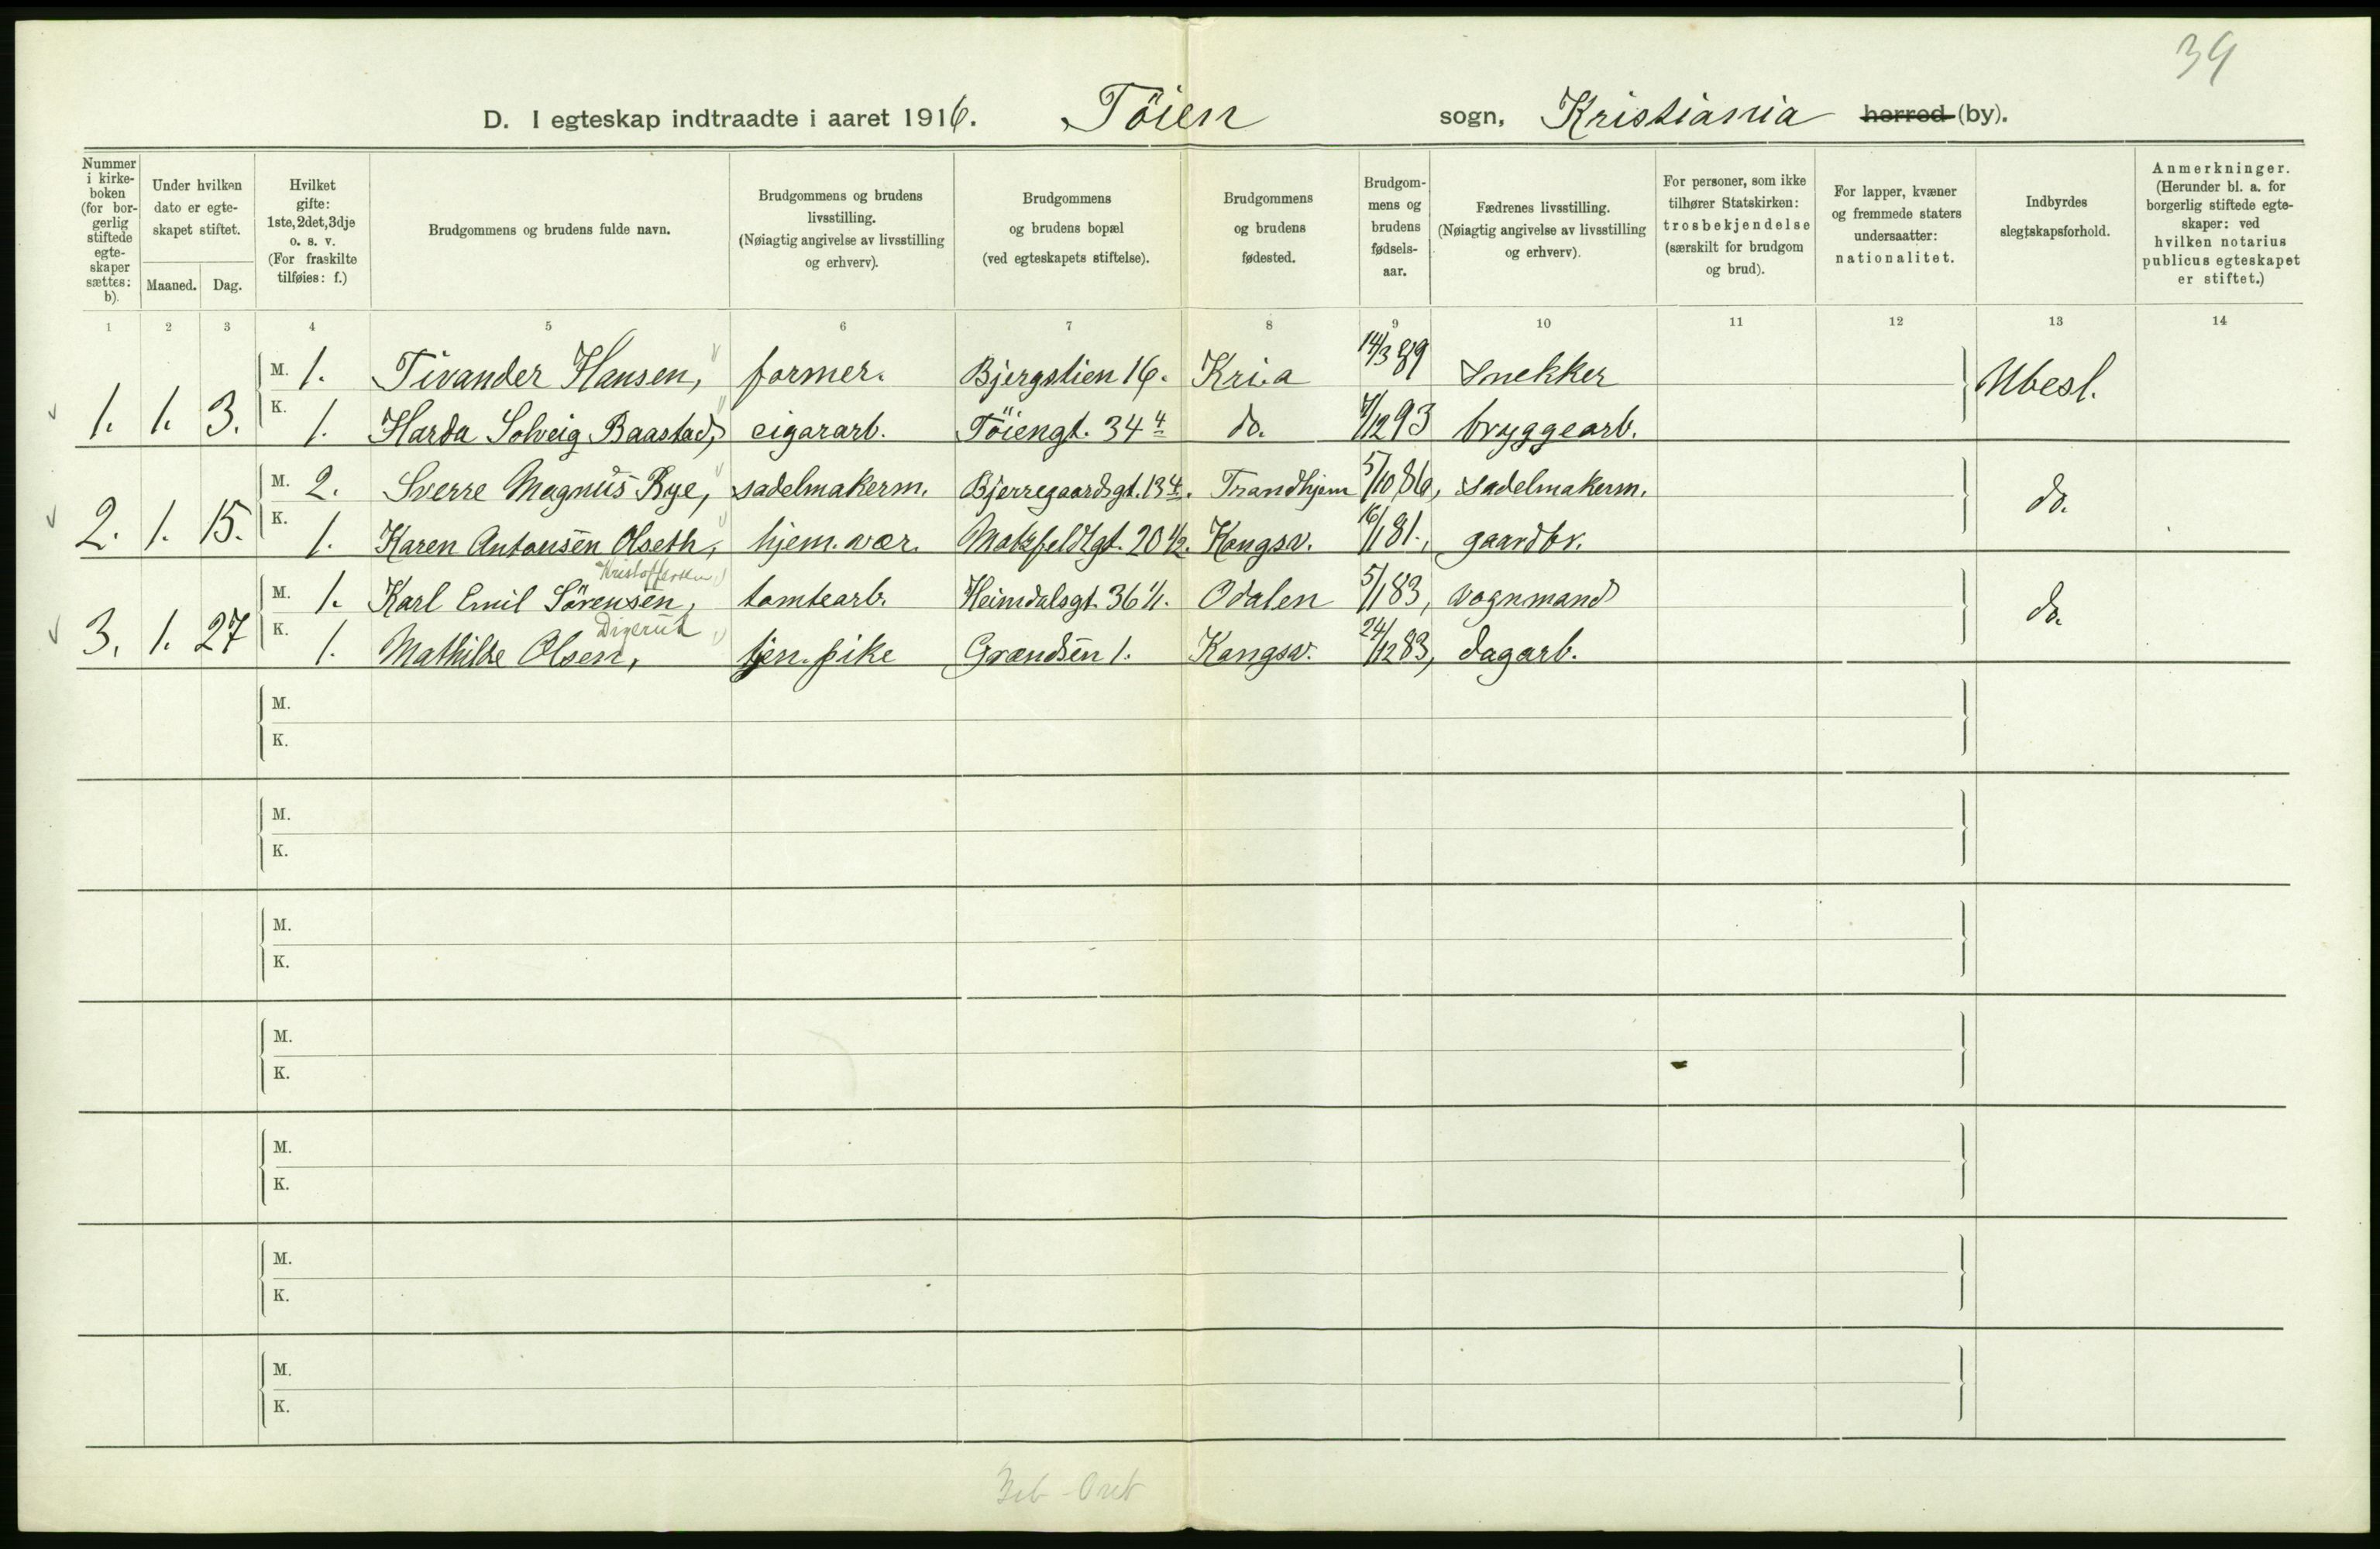 34
D. I egteskap indtraadte i aaret 1916. Töien sogn, Kristiania herred (by).
Nummer i kirkeboken (for borgerlig stiftede egteskaper sættes: b).
Under hvilken dato er egteskapet stiftet.
Maaned. Dag.
Hvilket gifte: 1ste, 2det, 3dje o. s. v. (For fraskilte tilføies: f.)
Brudgommens og brudens fulde navn.
Brudgommens og brudens livsstilling. (Nøiagtig angivelse av livsstilling og erhverv).
Brudgommens og brudens bopæl (ved egteskapets stiftelse).
Brudgommens og brudens fødested.
Brudgommens og brudens fødselsaar.
Fædrenes livsstilling. (Nøiagtig angivelse av livsstilling og erhverv).
For personer, som ikke tilhører Statskirken: trosbekjendelse (særskilt for brudgom og brud).
For lapper, kvæner og fremmede staters undersaatter: nationalitet.
Indbyrdes slegtskapsforhold.
Anmerkninger. (Herunder bl. a. for borgerlig stiftede egteskaper: ved hvilken notarius publicus egteskapet er stiftet.)
1 2 3 4 5 6 7 8 9 10 11 12 13 14
M. 1. Tivander Hansen, former. Bjergstien 16. Kria 14/3 89 Snekker
1. 1. 3. Ubesl.
K. 1. Harda Solveig Baastad, cigararb. Töiengt. 34 4 do. 7/12 93 bryggearb.
M. 2. Sverre Magnus Rye, sadelmakerm. Bjerregaardsgt. 13 4. Trondhjem 5/10 86, sadelmakerm.
2. 1. 15. do.
K. 1. Karen Antonsen Olseth, hjem. vær. Motzfeldtgt. 20 1/2. Kongsv. 16/1 81., gaardbr.
Kristoffersen
M. 1. Karl Emil Sörensen, tomtearb. Heimdalsgt. 36 1/1. Odalen 5/1 83, vognmand
3. 1. 27 do.
Digerud
K. 1. Mathilde Olsen, tjen. pike Grændsen 1. Kongsv. 24/12 83, dagarb.
M.
K.
M.
K.
M.
K.
M.
K.
M.
K.
M.
K.
M.
K.